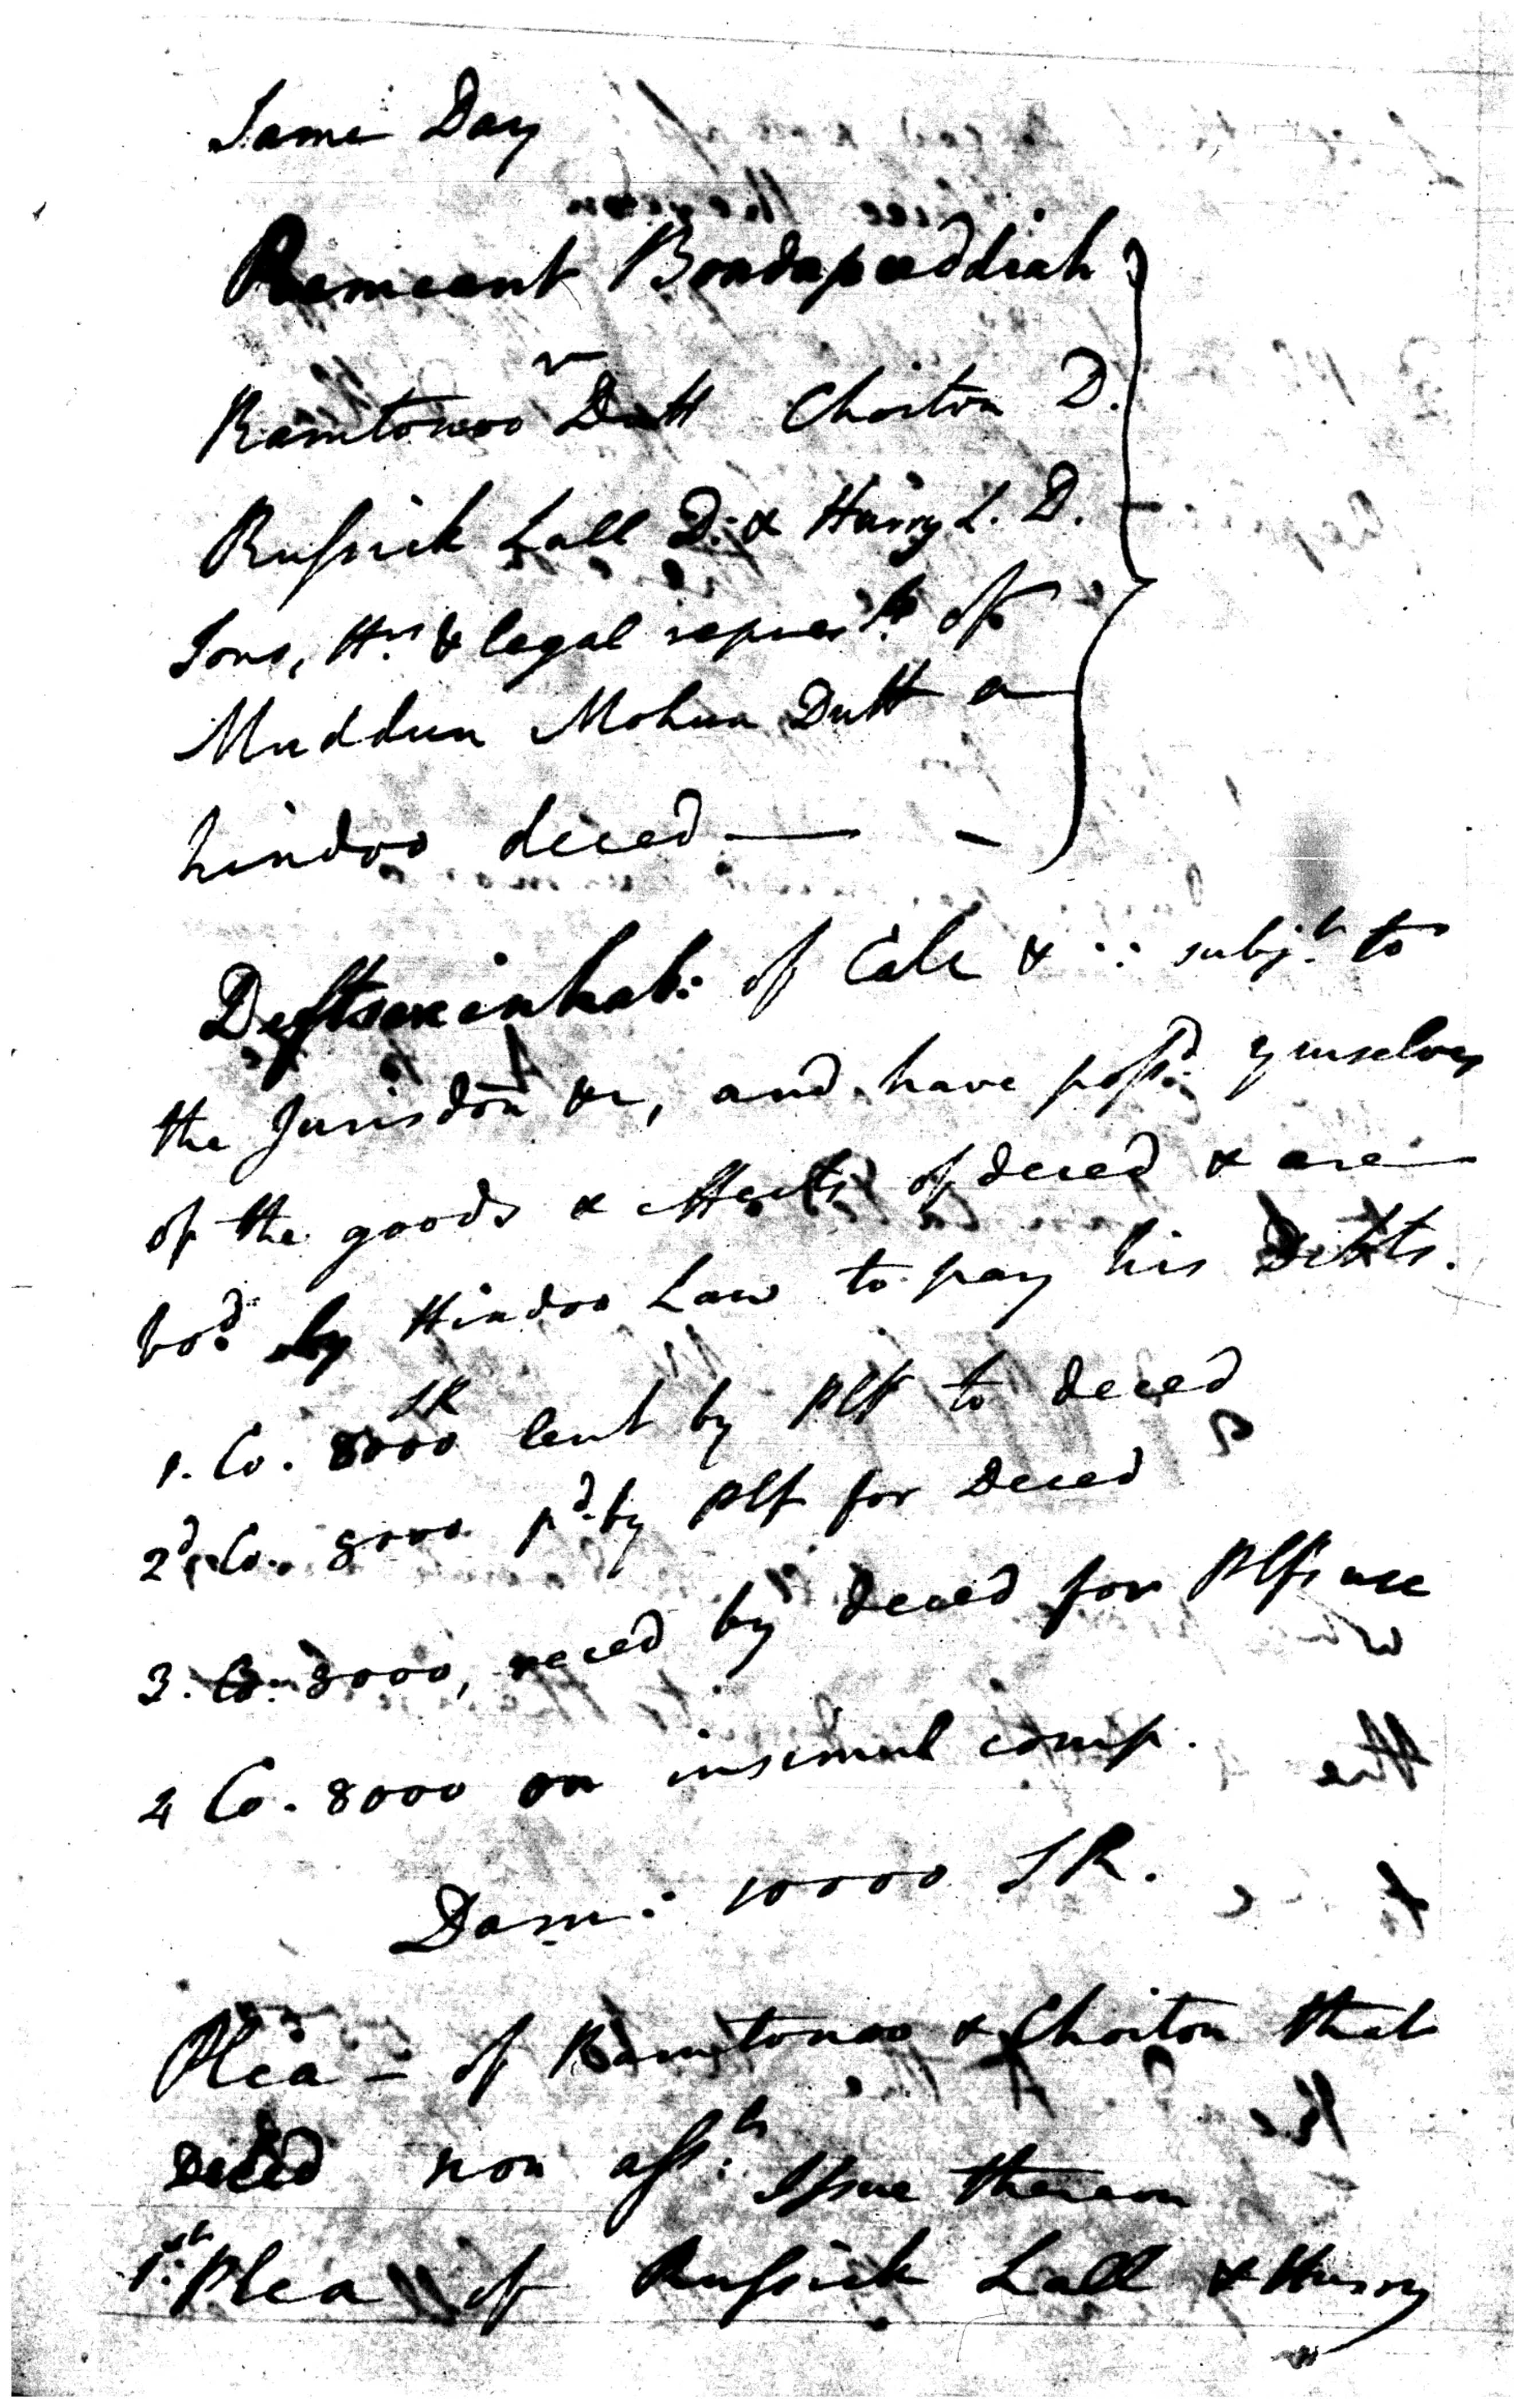 Same Day
Ramcant Bondapaddiah
v
Ramtonoo Dutt Choiton D.
Russick Lall D. & Hurry L. D. —
Sons, Hrs & legal represts. of
Muddun Mohun Dutt a
hindoo deced — —
Defts are inhab: of Calc & ∵ subjt. to
the Jurisdon &c, and have possd. ymselves
of the goods & effects of deced & are
bod. by Hindoo Law to pay his Debts.
1. Co. 8000 SR lent by Plff to deced
2d. Co. 8000 pd. by Plf for Deced
3. Co. 8000, reced by deced for Plfs use
4 Co. 8000 on insimul comp.
Dam: 10000 SR.
Plea — of Ramtonoo & Choiton that
Deced non asst. Issue thereon
1st. Plea of Russick Lall & Hurry